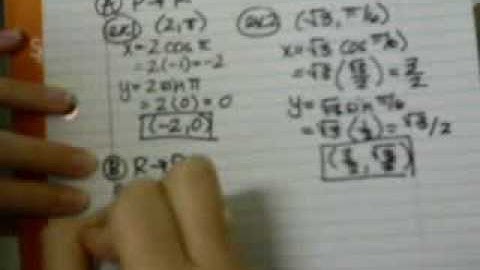 Ⓐ P → R
ex1) (2, π)
x = 2 cos π
= 2(-1) = -2
y = 2 sin π
= 2(0) = 0
(-2, 0)
ex2) (√3, π/6)
x = √3 cos π/6
= √3 (√3/2) = 3/2
y = √3 sin π/6
= √3 (1/2) = √3/2
(3/2, √3/2)
Ⓑ R → P